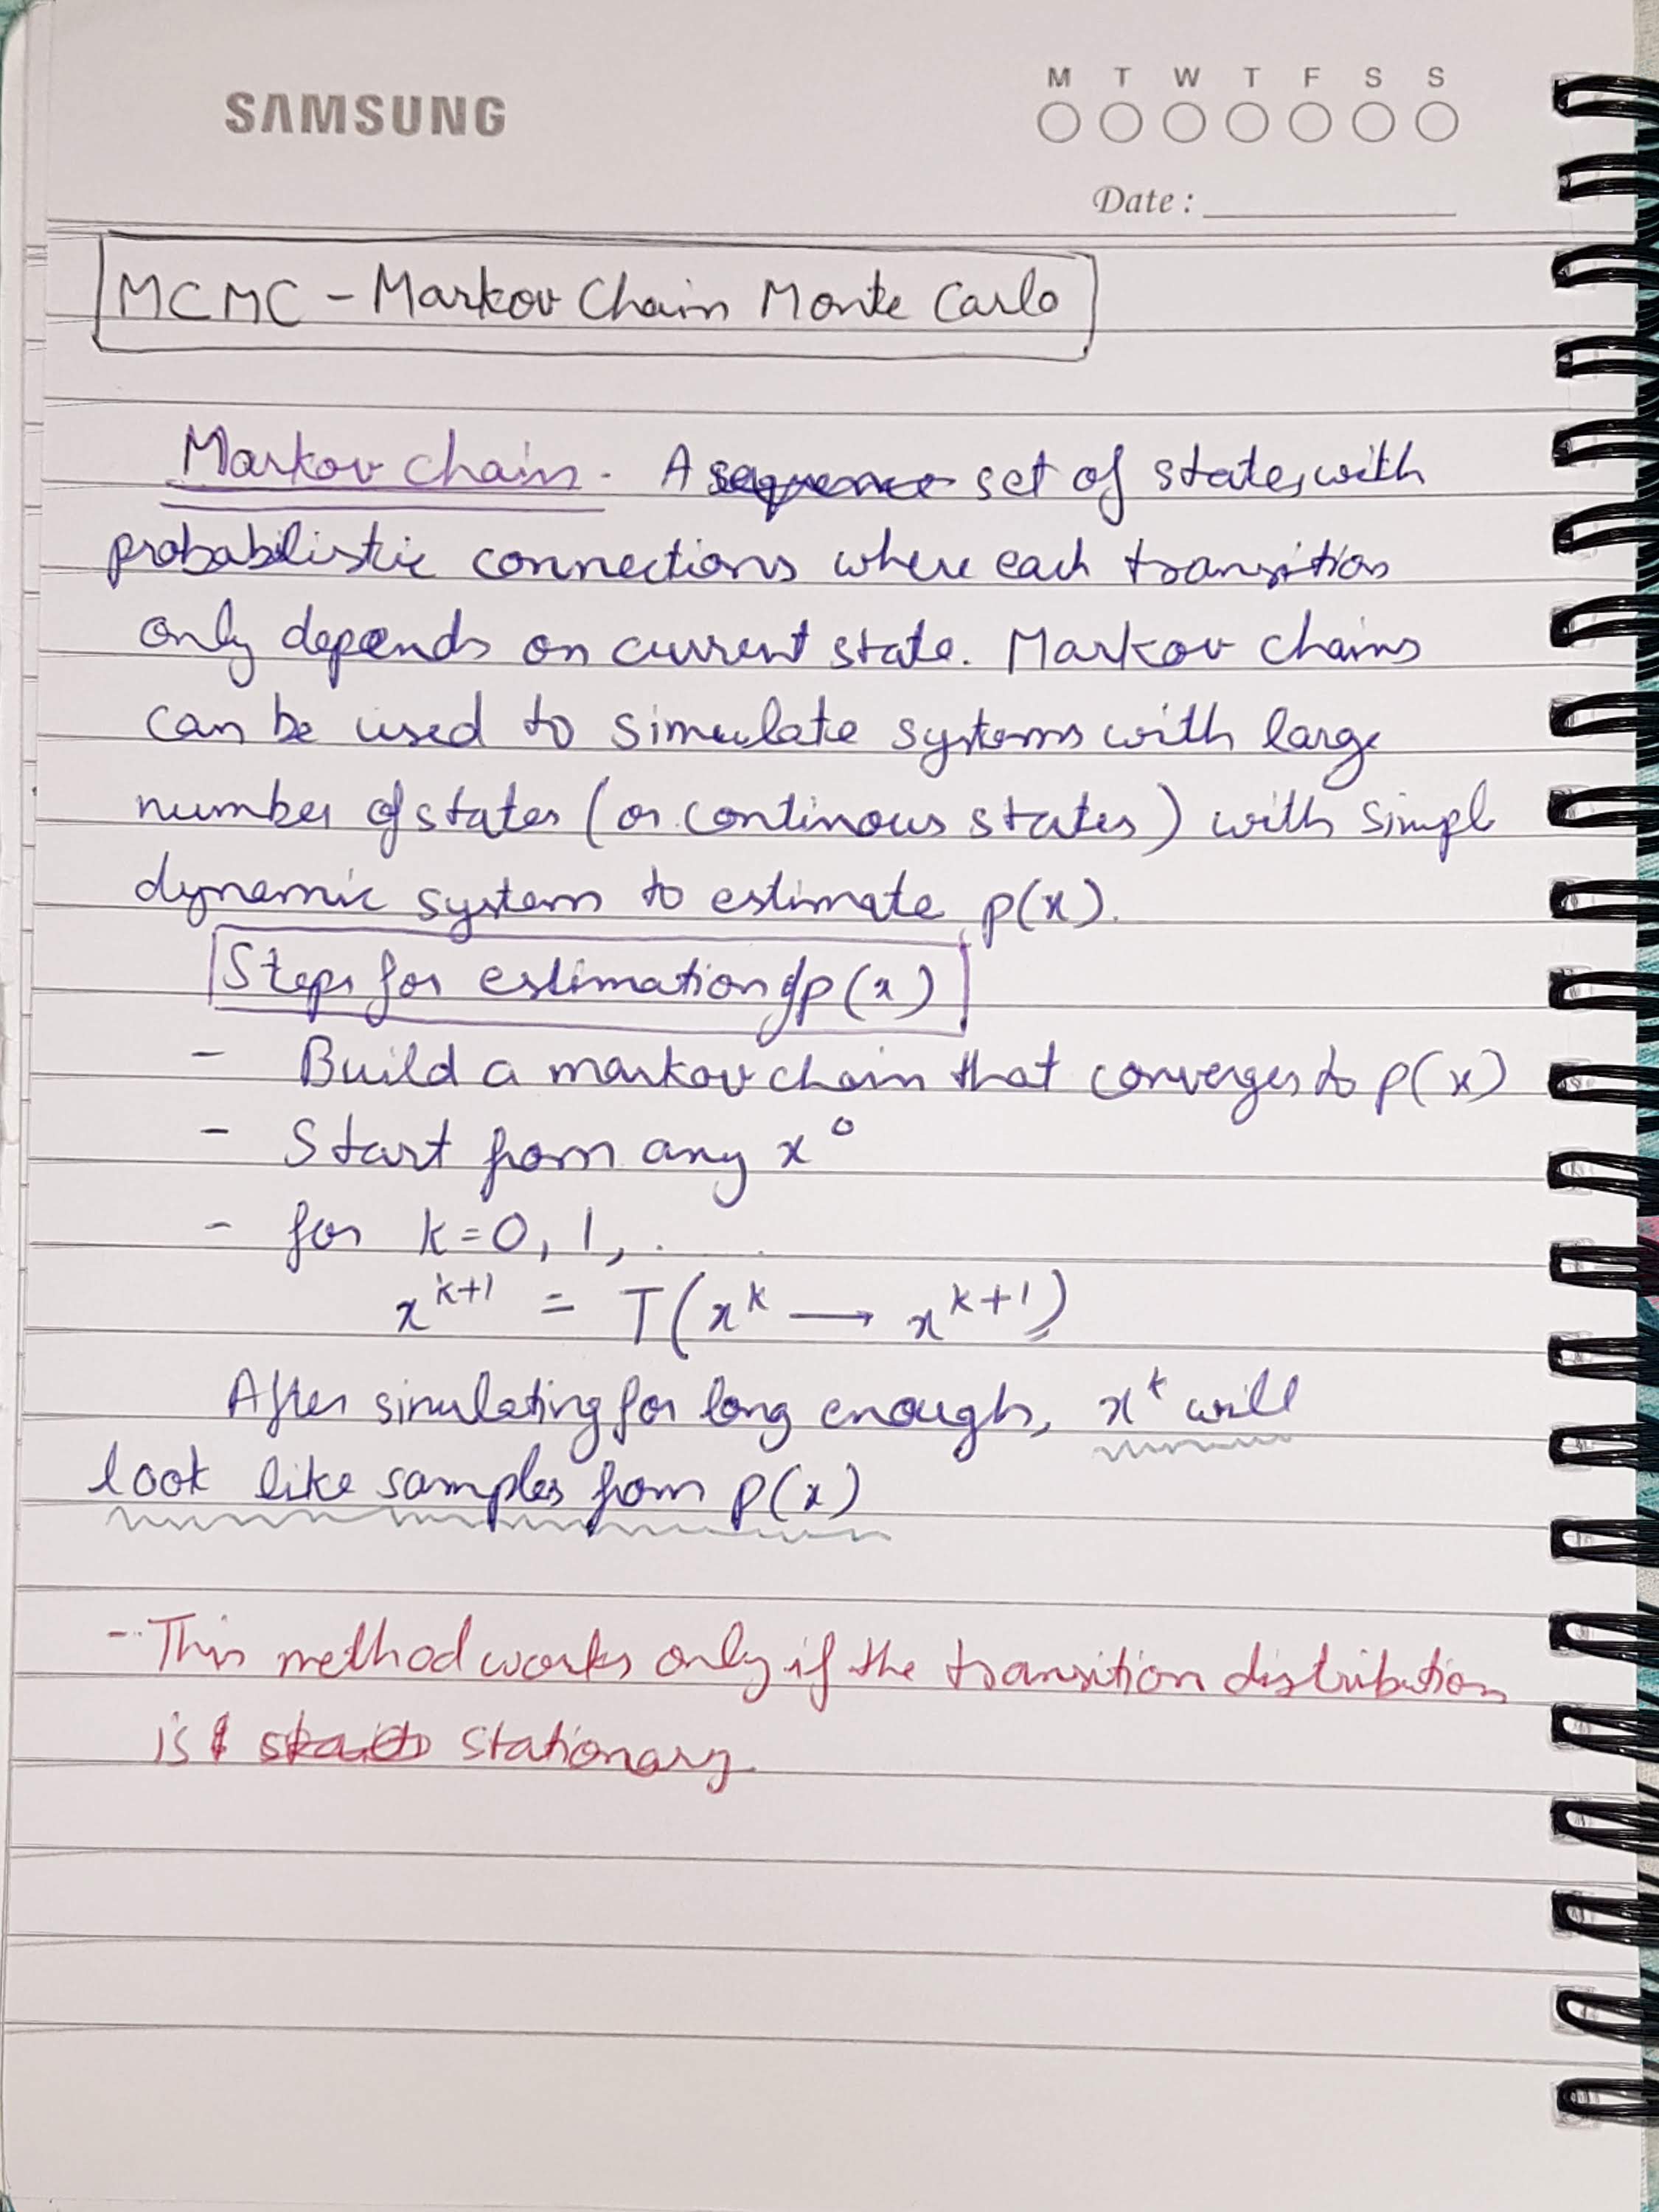 SAMSUNG
M T W T F S S
Date :
MCMC - Markov Chain Monte Carlo
Markov chain - A sequence set of states, with
probabilistic connections where each transition
only depends on current state. Markov chains
can be used to simulate systems with large
number of states (or continous states) with simpl
dynamic system to estimate p(x).
Steps for estimation of p(x)
- Build a markov chain that converges to p(x)
- Start from any x⁰
- for k=0, 1, .
x^{k+1} = T(x^k → x^{k+1})
After simulating for long enough, x^k will
look like samples from p(x)
- This method works only if the transition distribution
is stationary.